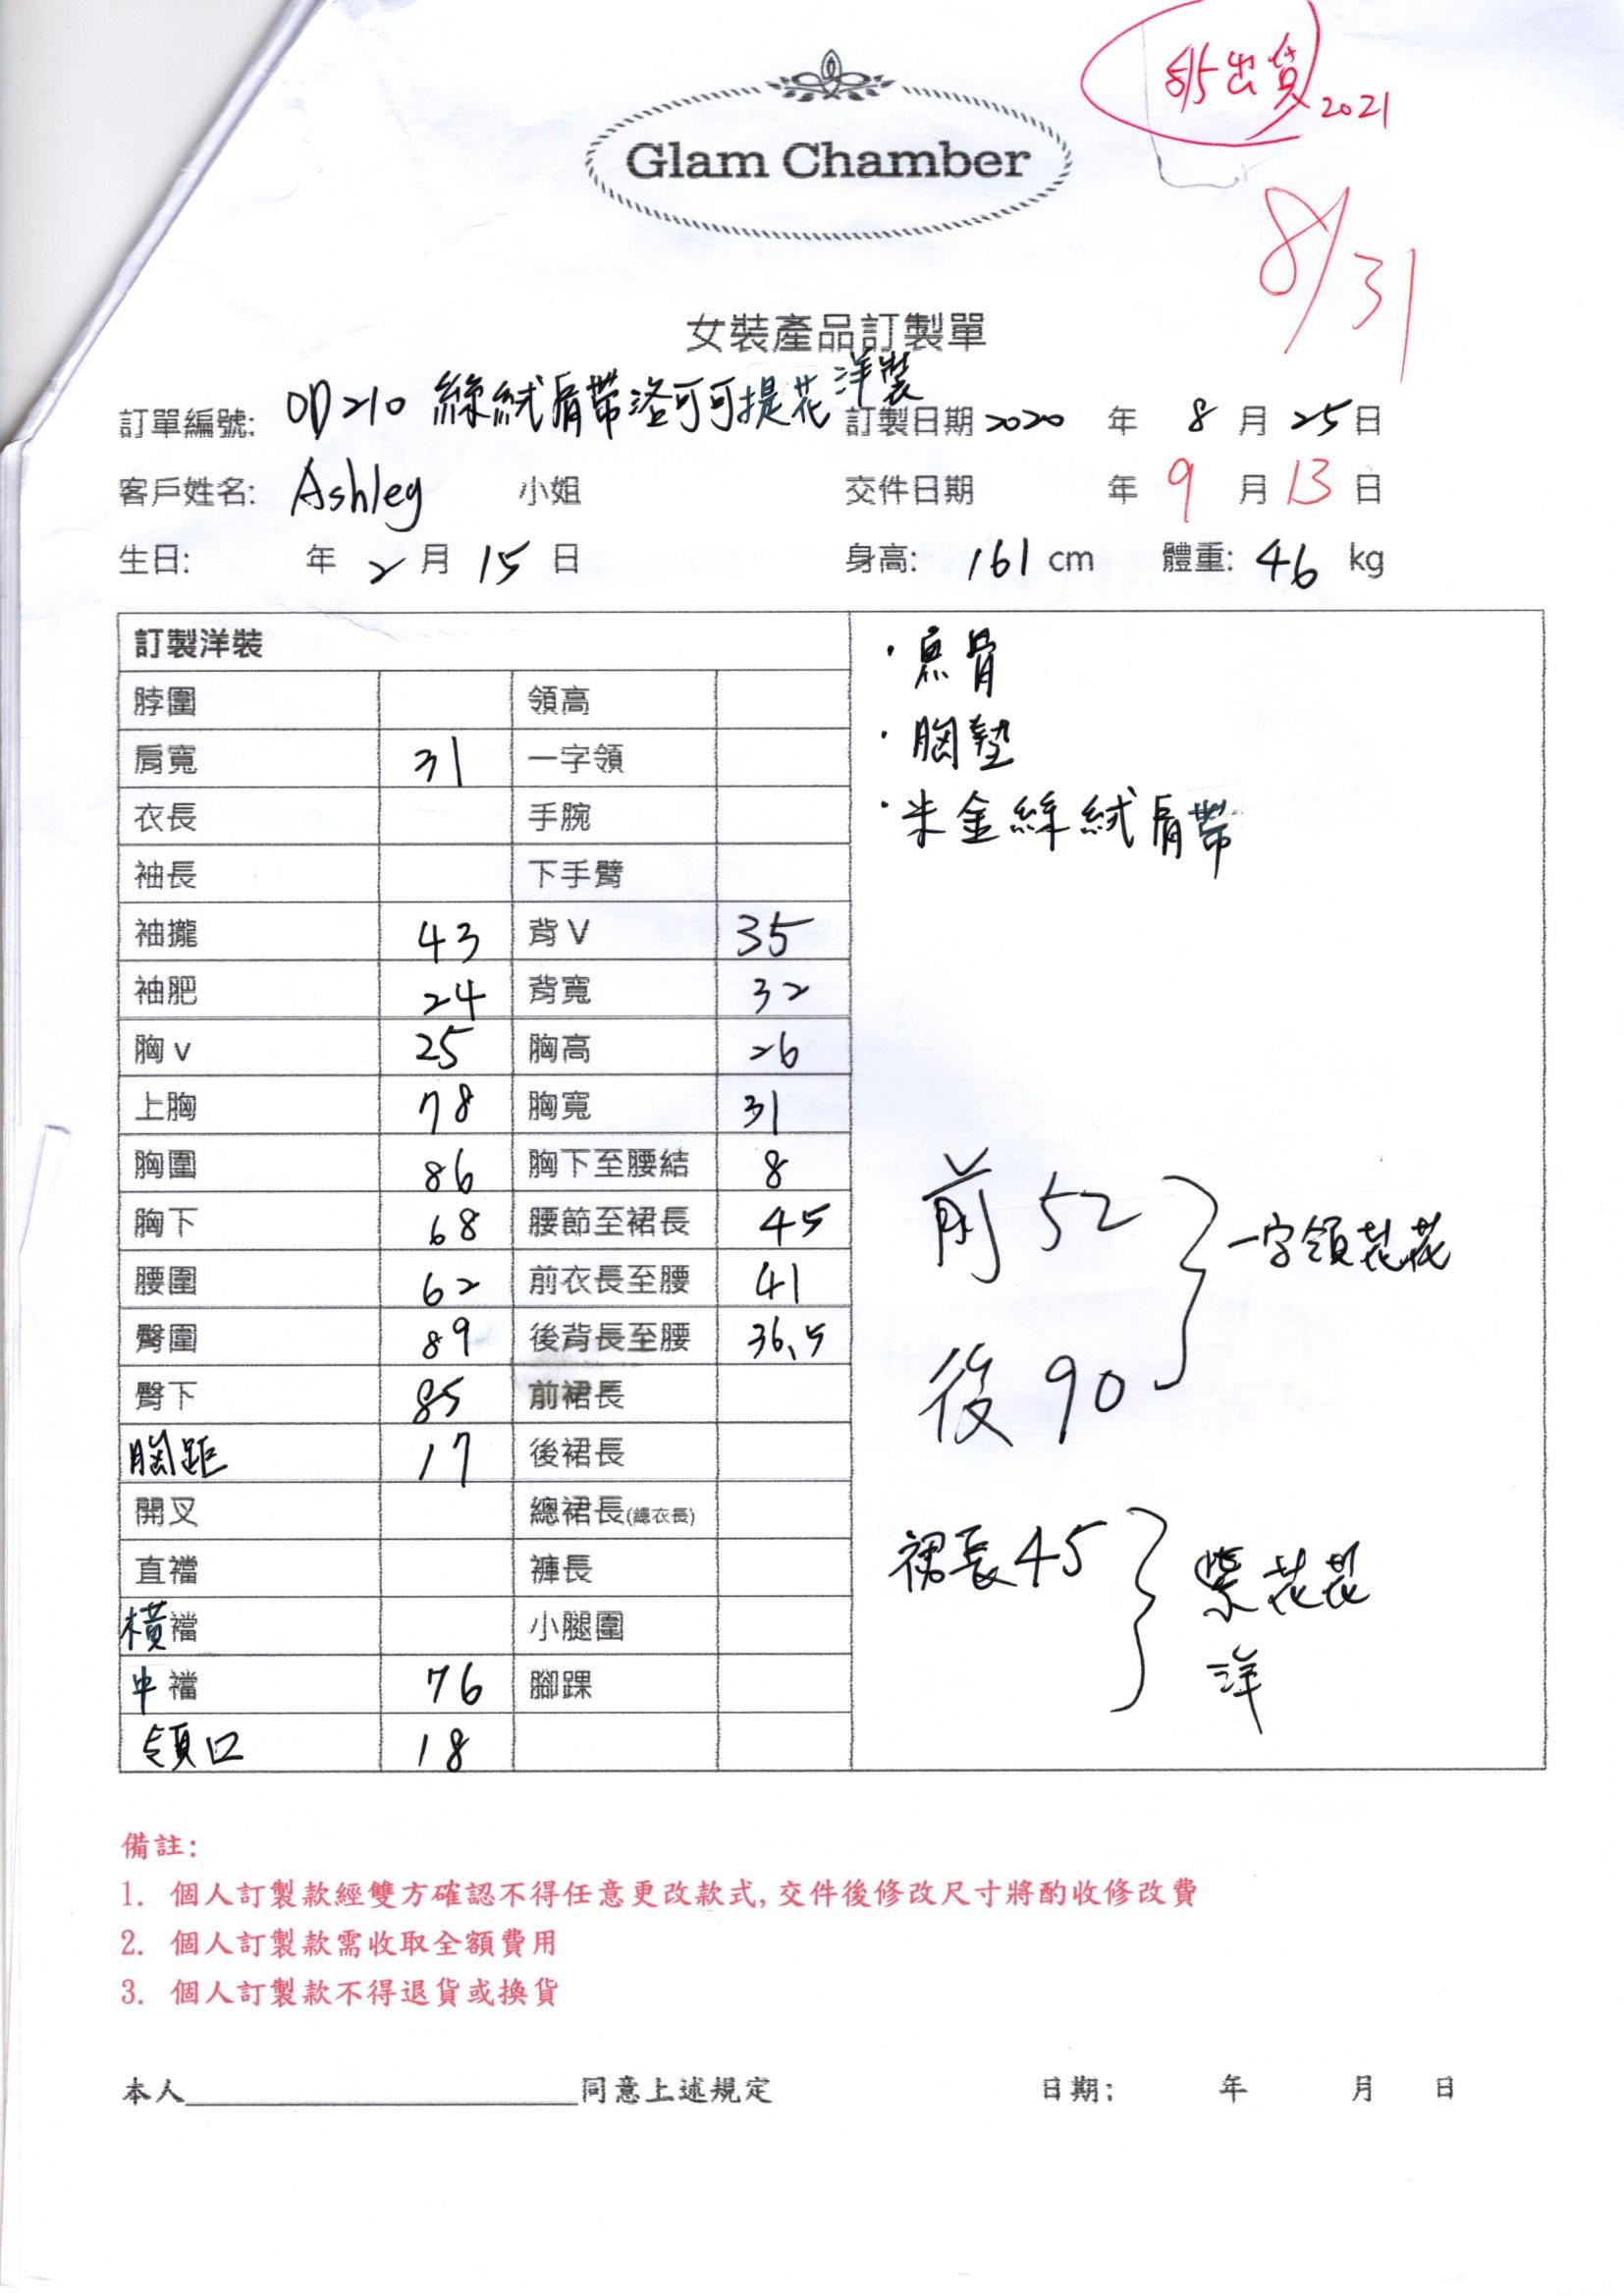 8/5出貨 2021
Glam Chamber
8/31
女裝產品訂製單
訂單編號: OD210 絲絨肩帶洛可可提花洋裝 訂製日期 2020 年 8 月 25 日
客戶姓名: Ashley 小姐 交件日期 年 9 月 13 日
生日: 年 2 月 15 日 身高: 161 cm 體重: 46 kg
訂製洋裝
脖圍 領高
肩寬 31 一字領
衣長 手腕
袖長 下手臂
袖攏 43 背V 35
袖肥 24 背寬 32
胸v 25 胸高 26
上胸 78 胸寬 31
胸圍 86 胸下至腰結 8
胸下 68 腰節至裙長 45
腰圍 62 前衣長至腰 41
臀圍 89 後背長至腰 36.5
臀下 85 前裙長
胸距 17 後裙長
開叉 總裙長(總衣長)
直襠 褲長
橫襠 小腿圍
中襠 76 腳踝
領口 18
·魚骨
·胸墊
·米金絲絨肩帶
前 52
一字領花花
後 90
裙長45
紫花花
洋
備註:
1. 個人訂製款經雙方確認不得任意更改款式,交件後修改尺寸將酌收修改費
2. 個人訂製款需收取全額費用
3. 個人訂製款不得退貨或換貨
本人____________________同意上述規定 日期: 年 月 日